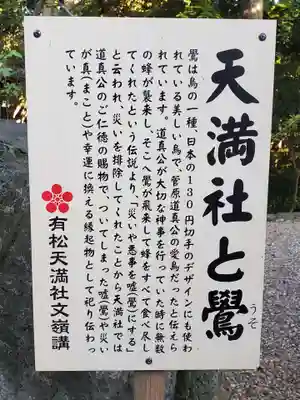 天満社と鷽
うそ
鷽は鳥の一種、日本の130円切手のデザインにも使わ
れている美しい鳥で、菅原道真公の愛鳥だったと伝えら
れています。道真公が大切な神事を行っていた時に無数
の蜂が襲来し、そこへ鷽が飛来して蜂をすべて食べ尽し
てくれたという伝説より、「災いや悪事を嘘(鷽)にする」
と云われ、災いを排除してくれたことから天満社では
道真公のご仁徳の賜物で、ついてしまった嘘(鷽)や災い
が真(まこと)や幸運に換える縁起物として祀り伝わっ
ています。
有松天満社文嶺講